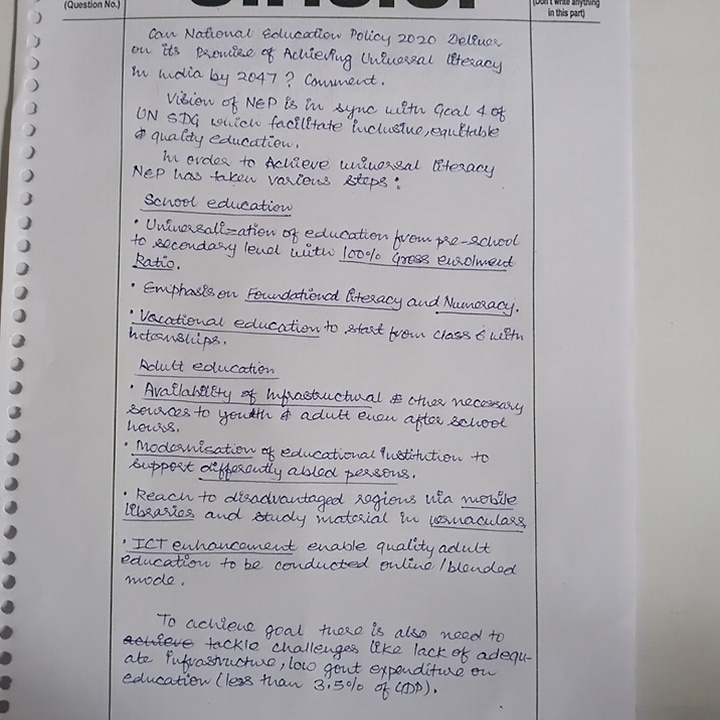 (Question No.)
(Don't write anything
in this part)
Can National Education Policy 2020 Deliver
on its Promise of Achieving Universal literacy
in India by 2047 ? Comment.
Vision of NEP is in sync with Goal 4 of
UN SDG which facilitate inclusive, equitable
& quality education.
In order to Achieve universal literacy
NEP has taken various steps :
School education
• Universalization of education from pre-school
to secondary level with 100% Gross enrolment
Ratio.
• Emphasis on Foundational literacy and Numeracy.
• Vocational education to start from class 6 with
Internships.
Adult education
• Availability of Infrastructural & other necessary
sources to youth & adult even after school
hours.
• Modernisation of educational Institution to
support differently abled persons.
• Reach to disadvantaged regions via mobile
libraries and study material in vernaculars
• ICT enhancement enable quality adult
education to be conducted online / blended
mode.
To achieve goal there is also need to
achieve tackle challenges like lack of adequ-
ate infrastructure, low govt expenditure on
education (less than 3.5% of GDP).